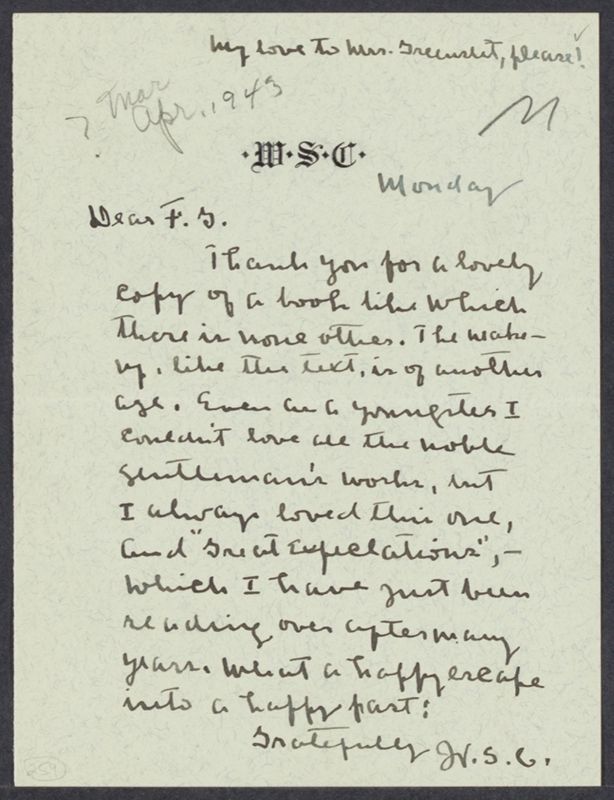 My love to Mrs. Greenslet, please!
? Mar
Apr. 1943
·W·S·C·
Monday
Dear F. G.
Thank you for a lovely
copy of a book like which
there is none other. The make-
up, like the text, is of another
age. Even as a youngster I
couldn't love all the noble
gentleman's works, but
I always loved this one,
and "Great Expectations", –
which I have just been
reading over after many
years. What a happy escape
into a happy past!
Gratefully W. S. C.
259